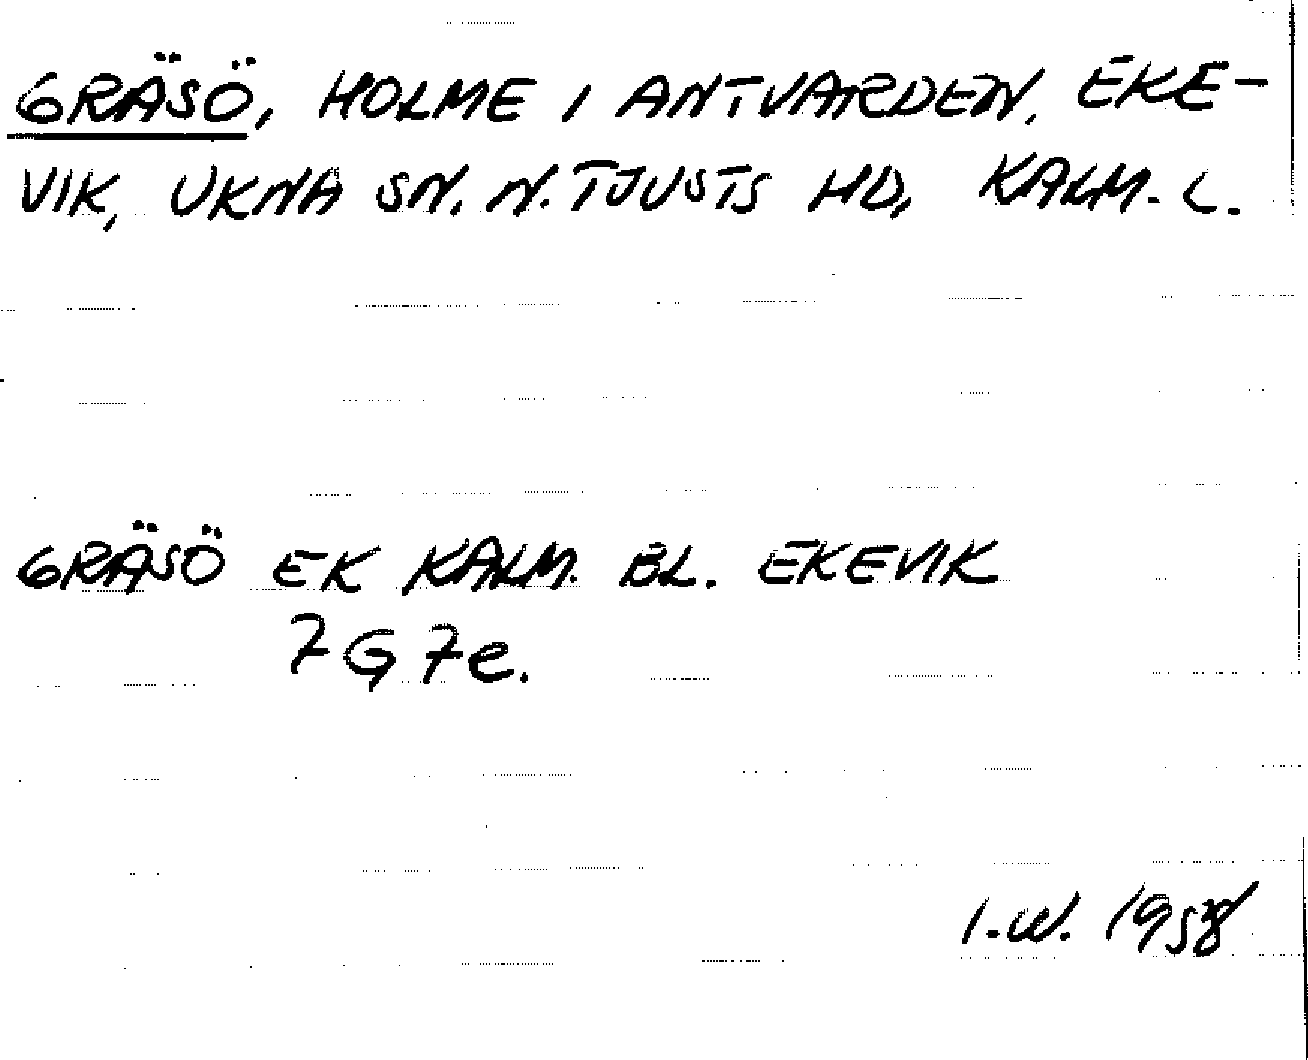 GRÄSÖ, HOLME I ANTVARDEN, EKE-
VIK, UKNA SN. N. TJUSTS HD, KALM. L.
GRÄSÖ EK KALM. BL. EKEVIK
7G7e.
I.W. 1958